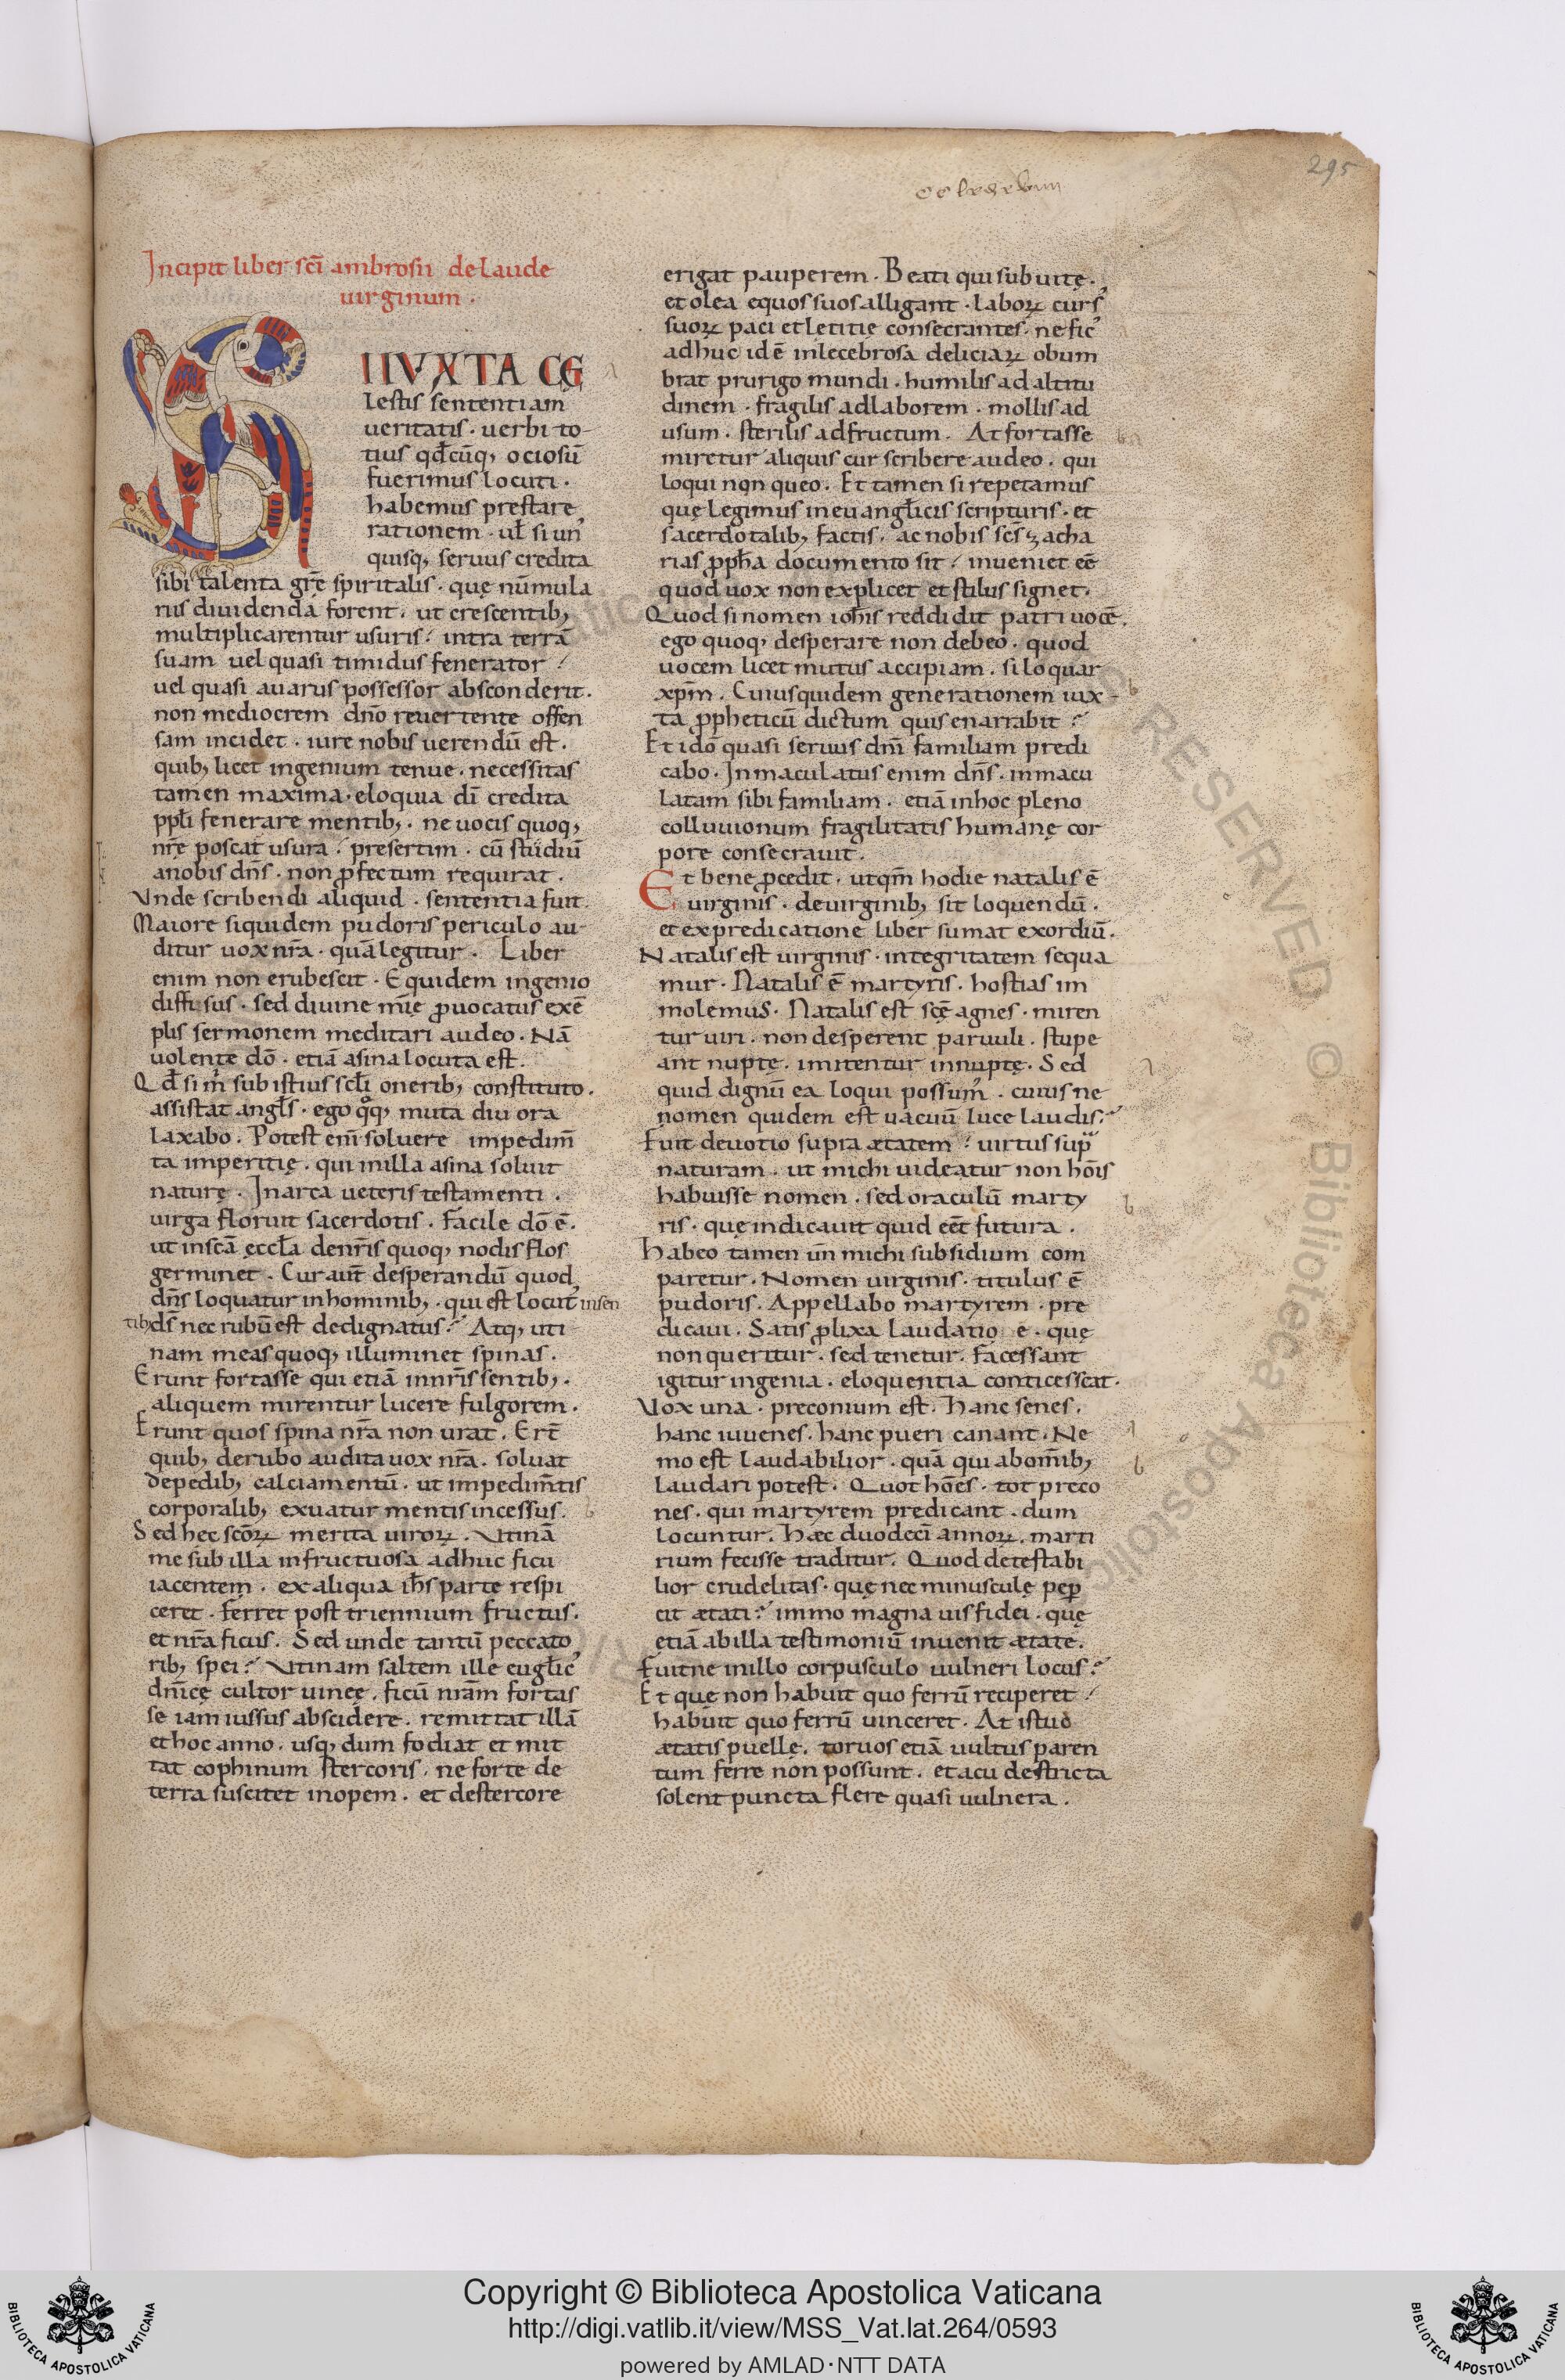 295
Incipit liber sci̅ ambrosii de laude
uirginum .
S
I IVXTA CE
lestis sententiam
ueritatis . uerbi to-
tius qđcu̅q; ociosu̅
fuerimus locuti .
habemus prestare
rationem . ul̅ si un᾿
quisq; seruus credita
sibi talenta gr̅e spiritalis . quę nu̅mula
riis diuidenda forent . ut crescentib;
multiplicarentur usuris . intra terra̅
suam uel quasi timidus fenerator
uel quasi auarus possessor absconderit .
non mediocrem dn̅o reuertente offen
sam incidet . iure nobis uerendu̅ est .
quib; licet ingenium tenue . necessitas
tamen maxima . eloquia di̅ credita
ppl̅i fenerare mentib; . ne uocis quoq;
nr̅ę poscat usura . presertim . cu̅ studiu̅
a nobis dn̅s . non ꝓfectum requirat .
Vnde scribendi aliquid . sententia fuit .
Maiore siquidem pudoris periculo au-
ditur uox nr̅a . qua̅ legitur . Liber
enim non erubescit . Equidem ingenio
diffisus . sed diuine mi̅ę ꝓuocatus exe̅
plis sermonem meditari audeo . Na̅
uolente do̅ . etia̅ asina locuta est .
Qđ si m᾿ sub istius scl̅i onerib; constituto .
assistat angl̅s . ego qq; muta diu ora
laxabo . Potest eni̅ soluere impedim̅
ta imperitię . qui in illa asina soluit
naturę . In arca ueteris testamenti .
uirga floruit sacerdotis . facile do̅ e̅ .
ut in sca̅ ęccl̅a de nr̅is quoq; nodis flos
germinet . Cur aut̅ desperandu̅ quod
dn̅s loquatur in hominib; . qui est locut᾿ in sen
tib; ds̅ nec rubu̅ est dedignatus . Atq; uti
nam meas quoq; illuminet spinas .
Erunt fortasse qui etia̅ in nr̅is sentib; .
aliquem mirentur lucere fulgorem .
Erunt quos spina nr̅a non urat . Ert̅
quib; de rubo audita uox nr̅a . soluat
de pedib; calciamentu̅ . ut impedim̅tis
corporalib; exuatur mentis incessus .
Sed hec sco̅ꝝ merita uiroꝝ . Vtina̅
me sub illa infructuosa adhuc ficu
iacentem . ex aliqua ih̅s parte respi
ceret . ferret post triennium fructus .
et nr̅a ficus . Sed unde tantu̅ peccato
rib; spei . Vtinam saltem ille eugl̅ic᾿
dn̅icę cultor uineę . ficu̅ nr̅am fortas
se iam iussus abscidere . remittat illa̅
et hoc anno . usq; dum fodiat et mit
tat cophinum stercoris . ne forte de
terra suscitet inopem . et de stercore
erigat pauperem . Beati qui sub uite .
et olea equos suos alligant . laboꝝ curs᾿
suoꝝ paci et letitie consecrantes . ne fic᾿
adhuc id e̅ inlecebrosa deliciaꝝ obum
brat prurigo mundi . humilis ad altitu
dinem . fragilis ad laborem . mollis ad
usum . sterilis ad fructum . At fortasse
miretur aliquis cur scribere audeo . qui
loqui non queo . Et tamen si repetamus
quę legimus in euangl̅icis scripturis . et
sacerdotalib; factis . ac nobis sc̅s zacha
rias ꝓph̅a documento sit . inueniet ee̅
quod uox non explicet et stilus signet .
Quod si nomen ioh̅is reddidit patri uoce̅ .
ego quoq; desperare non debeo . quod
uocem licet mutus accipiam . si loquar
xp̅m . Cuius quidem generationem iux-
ta ꝓpheticu̅ dictum quis enarrabit
Et ido̅ quasi seruus dn̅i familiam predi
cabo . Inmaculatus enim dn̅s . inmacu
latam sibi familiam . etia̅ in hoc pleno
colluuionum fragilitatis humanę cor
pore consecrauit .
Et bene ꝓcedit . ut qm̅ hodie natalis e̅
uirginis . de uirginib; sit loquendu̅ .
et ex predicatione liber sumat exordiu̅ .
Natalis est uirginis . integritatem sequa
mur . Natalis e̅ martyris . hostias im
molemus . Natalis est sce̅ agnes . miren
tur uiri . non desperent paruuli . stupe
ant nuptę . imitentur innuptę . Sed
quid dignu̅ ea loqui possum᾿ . cuius ne
nomen quidem est uacuu̅ luce laudis .
Fuit deuotio supra ætatem . uirtus sup͛
naturam . ut michi uideatur non ho̅is
habuisse nomen . sed oraculu̅ marty
ris . quę indicauit quid eet̅ futura .
Habeo tamen un̅ michi subsidium com
paretur . Nomen uirginis . titulus e̅
pudoris . Appellabo martyrem . pre
dicaui . Satis ꝓlixa laudatio e̅ . quę
non queritur . sed tenetur . Facessant
igitur ingenia . eloquentia conticesscat .
Vox una . preconium est . Hanc senes .
hanc iuuenes . hanc pueri canant . Ne
mo est laudabilior . qua̅ qui ab om̅ib;
laudari potest . Quot ho̅es . tot preco
nes . qui martyrem predicant . dum
locuntur . Hæc duodeci̅ annoꝝ . marti
rium fecisse traditur . Quod detestabi
lior crudelitas . quę nec minusculę pep͛
cit ætati . immo magna uis fidei . quę
etia̅ ab illa testimoniu̅ inuenit ætate .
Fuitne in illo corpusculo uulneri locus .
Et quę non habuit quo ferru̅ reciperet
habuit quo ferru̅ uinceret . At istud
ætatis puellę . toruos etia̅ uultus paren
tum ferre non possunt . et acu destricta
solent puncta flere quasi uulnera .
Copyright © Biblioteca Apostolica Vaticana
http://digi.vatlib.it/view/MSS_Vat.lat.264/0593
powered by AMLAD·NTT DATA
BIBLIOTECA APOSTOLICA VATICANA
BIBLIOTECA APOSTOLICA VATICANA